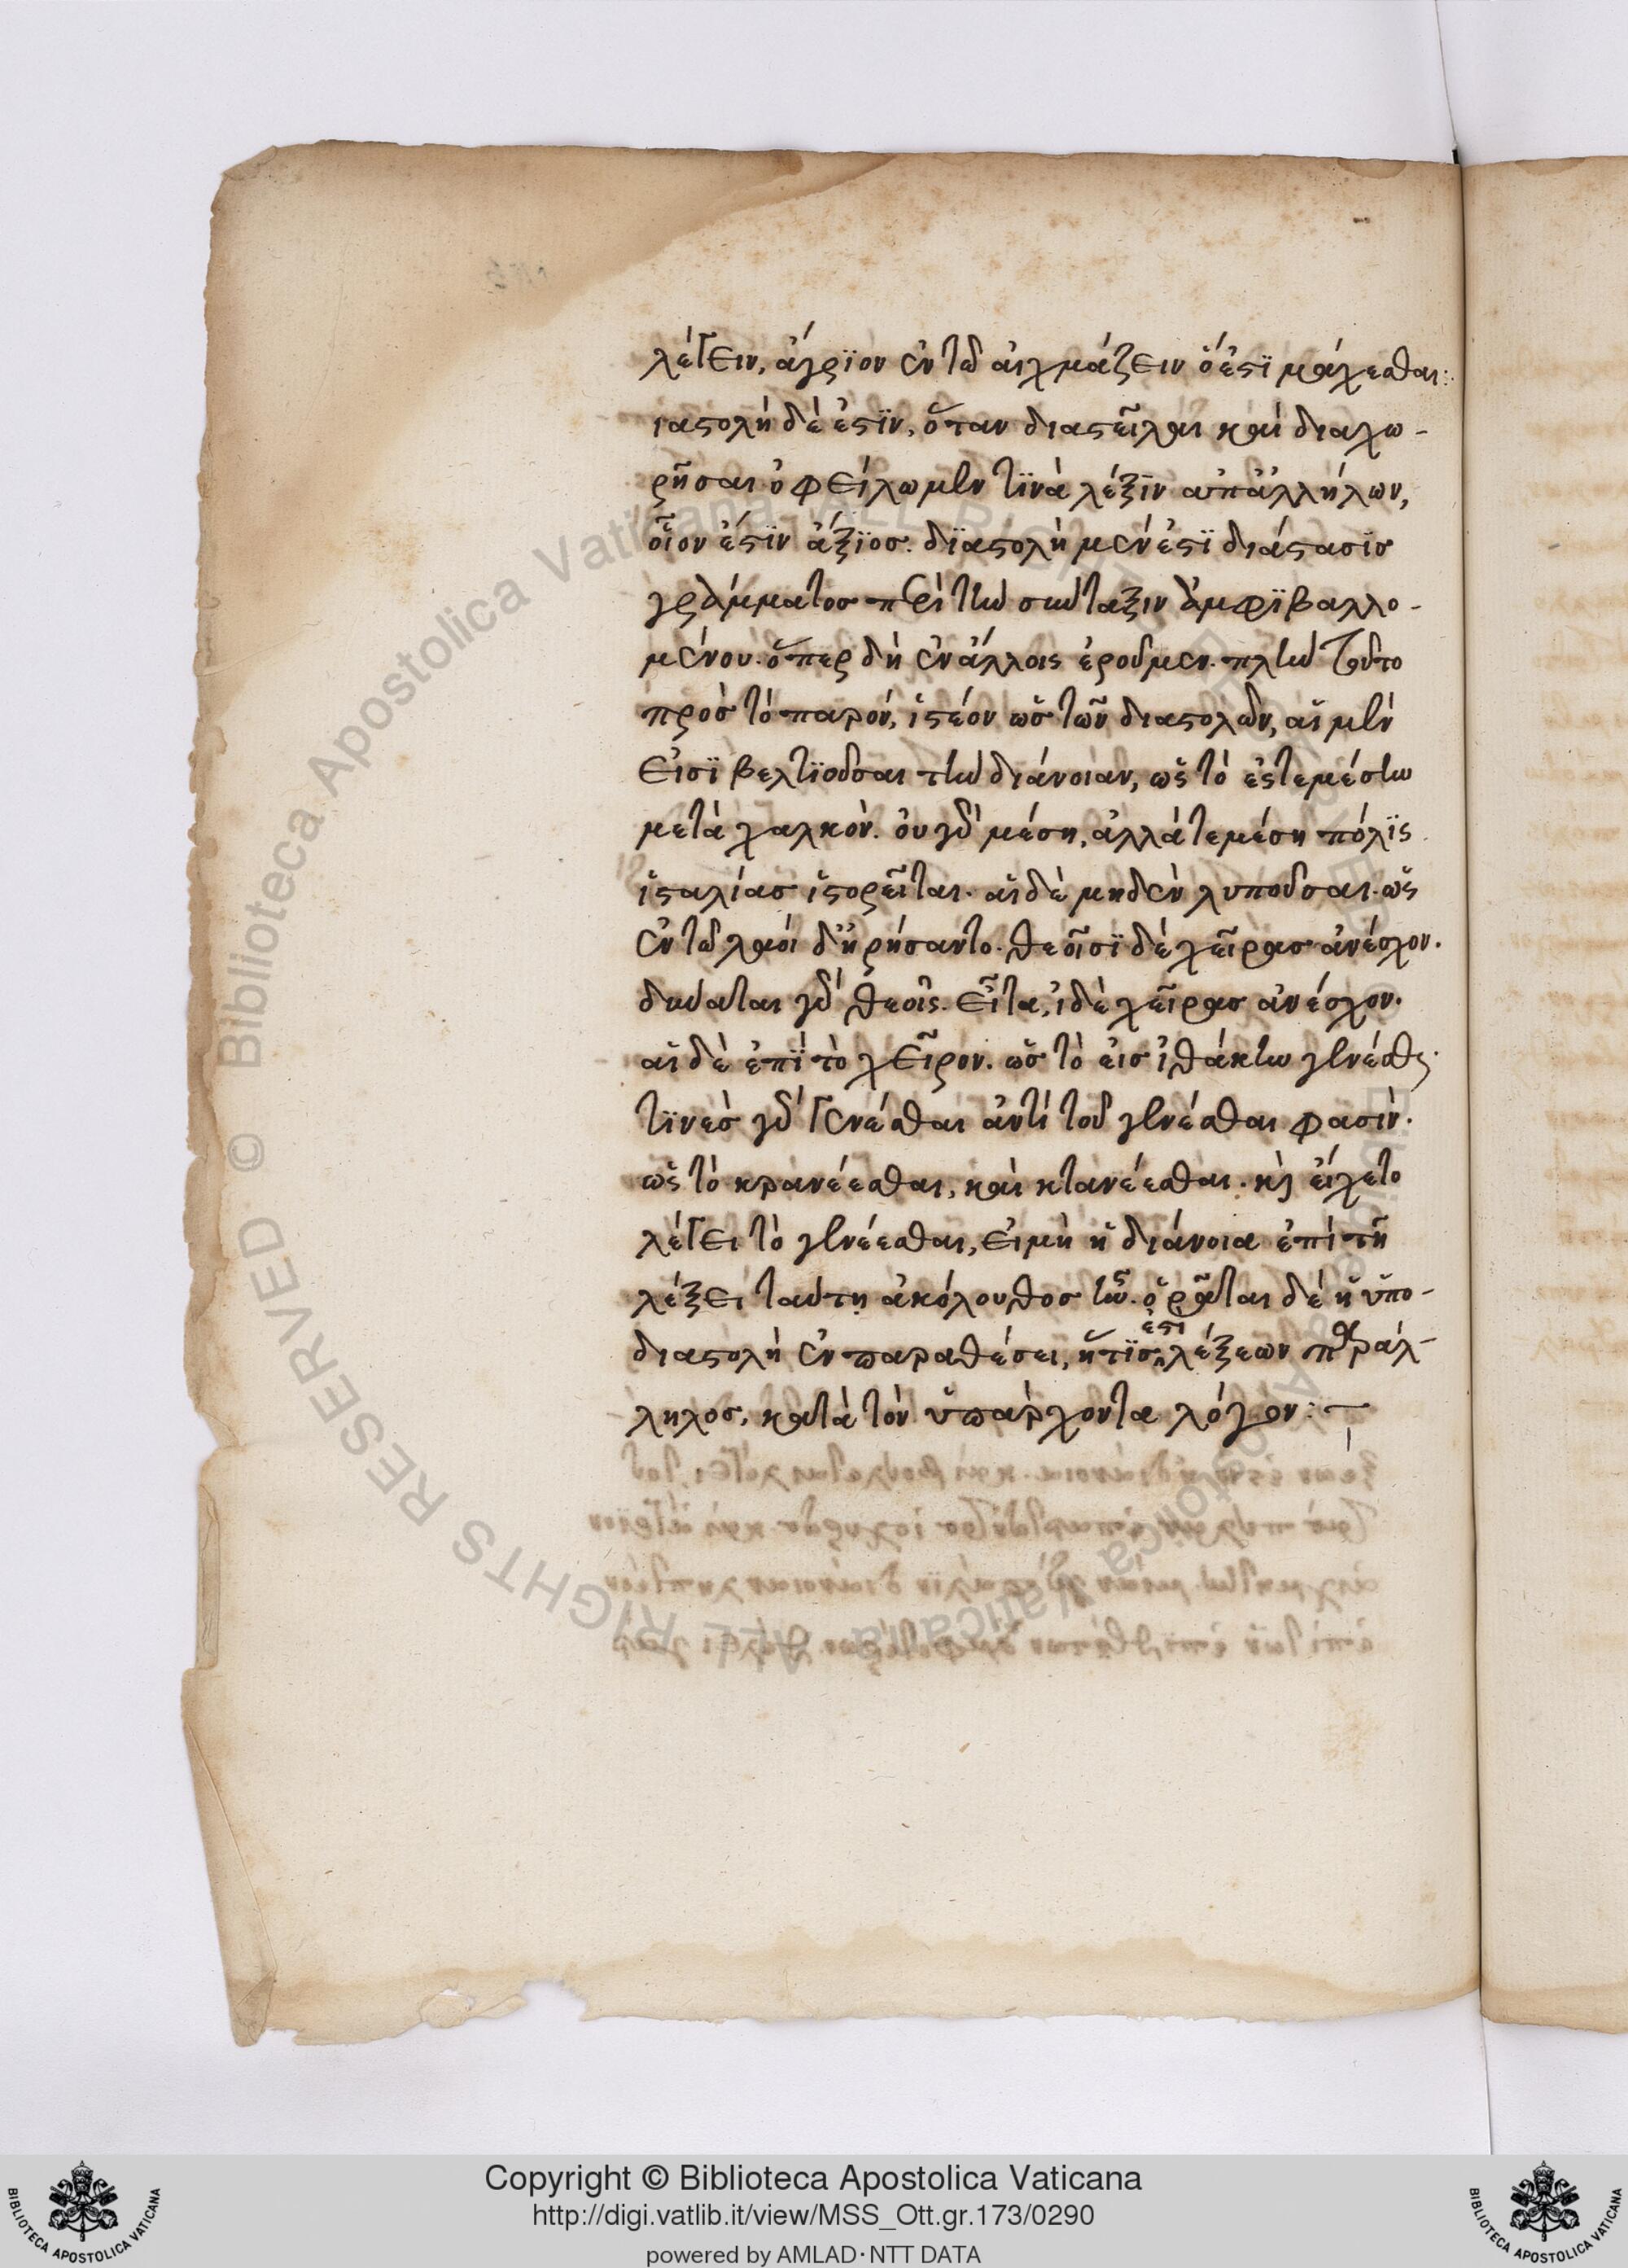 λέγειν, ἄγριον ἐν τῶ αἰχμάζειν ὅ ἐστϊ μάχεσθαι:
ιαστολὴ δὲ ἐστϊν, ὅταν διαστεῖλαι καὶ διαχω-
ρῆσαι ὀφείλωμεν τϊνὰ λέξϊν ἀπ' ἀλλήλων,
οἷον ἐστϊν ἄξϊος. δϊαστολὴ μέν ἐστϊ διάστασϊς
γράμματος περὶ τὴν σύνταξιν ἀμφϊβαλλο-
μένου. ὅπερ δὴ ἐν ἄλλοις ἐροῦμεν. πλὴν τοῦτο
πρὸς τὸ παρόν, ἰστέον ὡς τῶν διαστολῶν, αἱ μὲν
εἰσϊ βελτϊοῦσαι τὴν διάνοιαν, ὡς τὸ ἐς τεμέσην
μετὰ χαλκὸν. οὐ γὰρ μέση, ἀλλὰ τεμέση πόλϊς
ἰσταλίας ἱστορεῖται. αἱ δὲ μηδὲν λυποῦσαι. ὡς
ἐν τῶ λαοὶ δ' ἠρήσαντο. θεοῖσϊ δὲ χεῖρας ἀνέσχον.
δύναται γὰρ θεοῖς. εἶτα, ἰδὲ χεῖρας ἀνέσχον.
αἱ δὲ ἐπϊ τὸ χεῖρον. ὡς τὸ εἰς ἰθάκην γενέσθαι.
τϊνὲς γὰρ γενέσθαι ἀντὶ τοῦ γενέσθαι φασὶν.
ὡς τὸ κρανέεσθαι, καὶ κτανέεσθαι. καὶ εἴχετο
λέγει τὸ γενέεσθαι, εἰ μὴ ἡ διάνοια ἐπὶ τῆ
λέξει ταύτη ἀκόλουθος ἦν. ὁρᾶται δὲ ἡ ὑπο-
διαστολὴ ἐν παραθέσει, ἥτϊς ἐστι λέξεων παράλ-
ληλος, κατὰ τὸν ὑπάρχοντα λόγον:
Copyright © Biblioteca Apostolica Vaticana
http://digi.vatlib.it/view/MSS_Ott.gr.173/0290
powered by AMLAD·NTT DATA
BIBLIOTECA APOSTOLICA VATICANA
BIBLIOTECA APOSTOLICA VATICANA
© Biblioteca Apostolica Vaticana ALL RIGHTS RESERVED